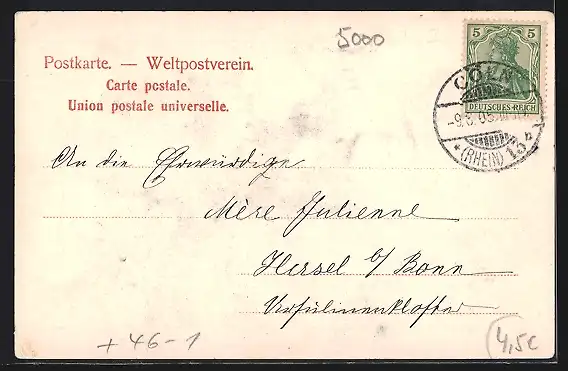 5000
Postkarte. — Weltpostverein.
Carte postale.
Union postale universelle.
5 5
DEUTSCHES REICH
CÖLN
-9.3.05
* (RHEIN) 1 n
An die Ehrwürdige
Mère Julienne
Hersel b/ Bonn
Ursulinenkloster
+46-1
4,5c